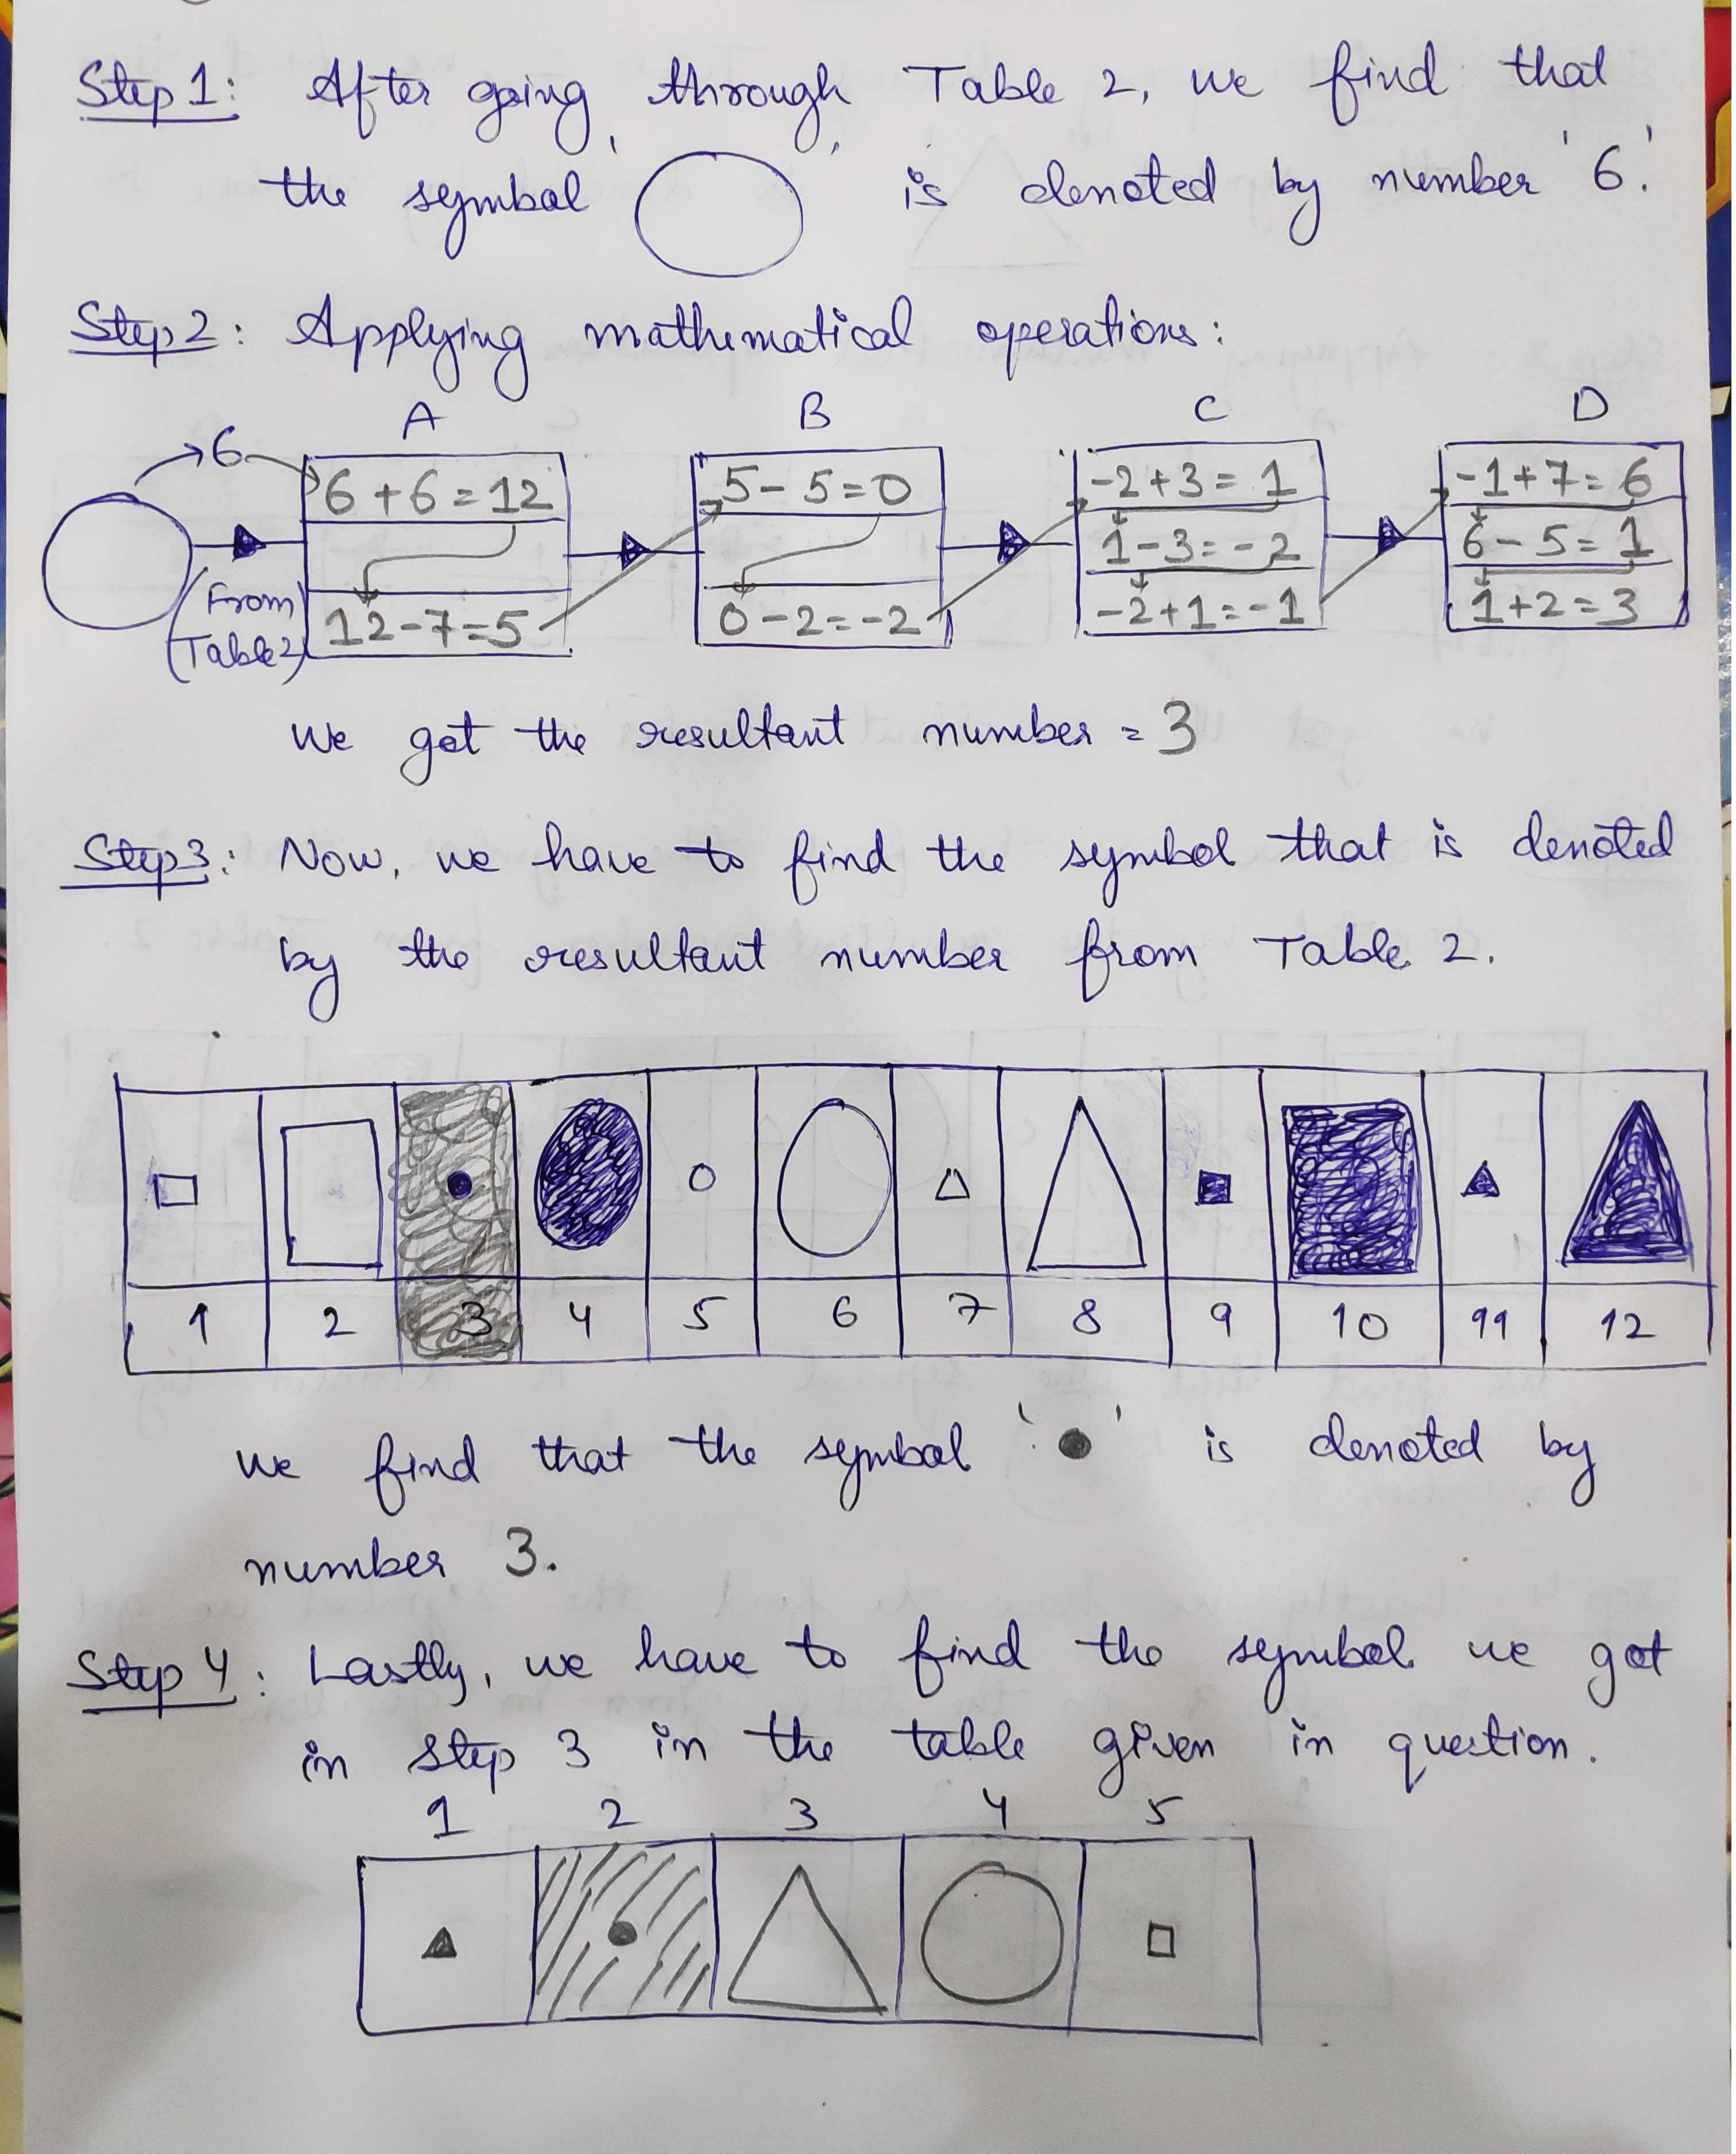 Step 1: After going through Table 2, we find that
the symbol ' ' is denoted by number '6.'
Step 2: Applying mathematical operations:
A B C D
6
6 + 6 = 12 5 - 5 = 0 -2 + 3 = 1 -1 + 7 = 6
1 - 3 = -2 6 - 5 = 1
(From Table 2) 12 - 7 = 5 0 - 2 = -2 -2 + 1 = -1 1 + 2 = 3
we got the resultant number = 3
Step 3: Now, we have to find the symbol that is denoted
by the resultant number from Table 2.
1 2 3 4 5 6 7 8 9 10 11 12
we find that the symbol ' ' is denoted by
number 3.
Step 4: Lastly, we have to find the symbol we got
in step 3 in the table given in question.
1 2 3 4 5